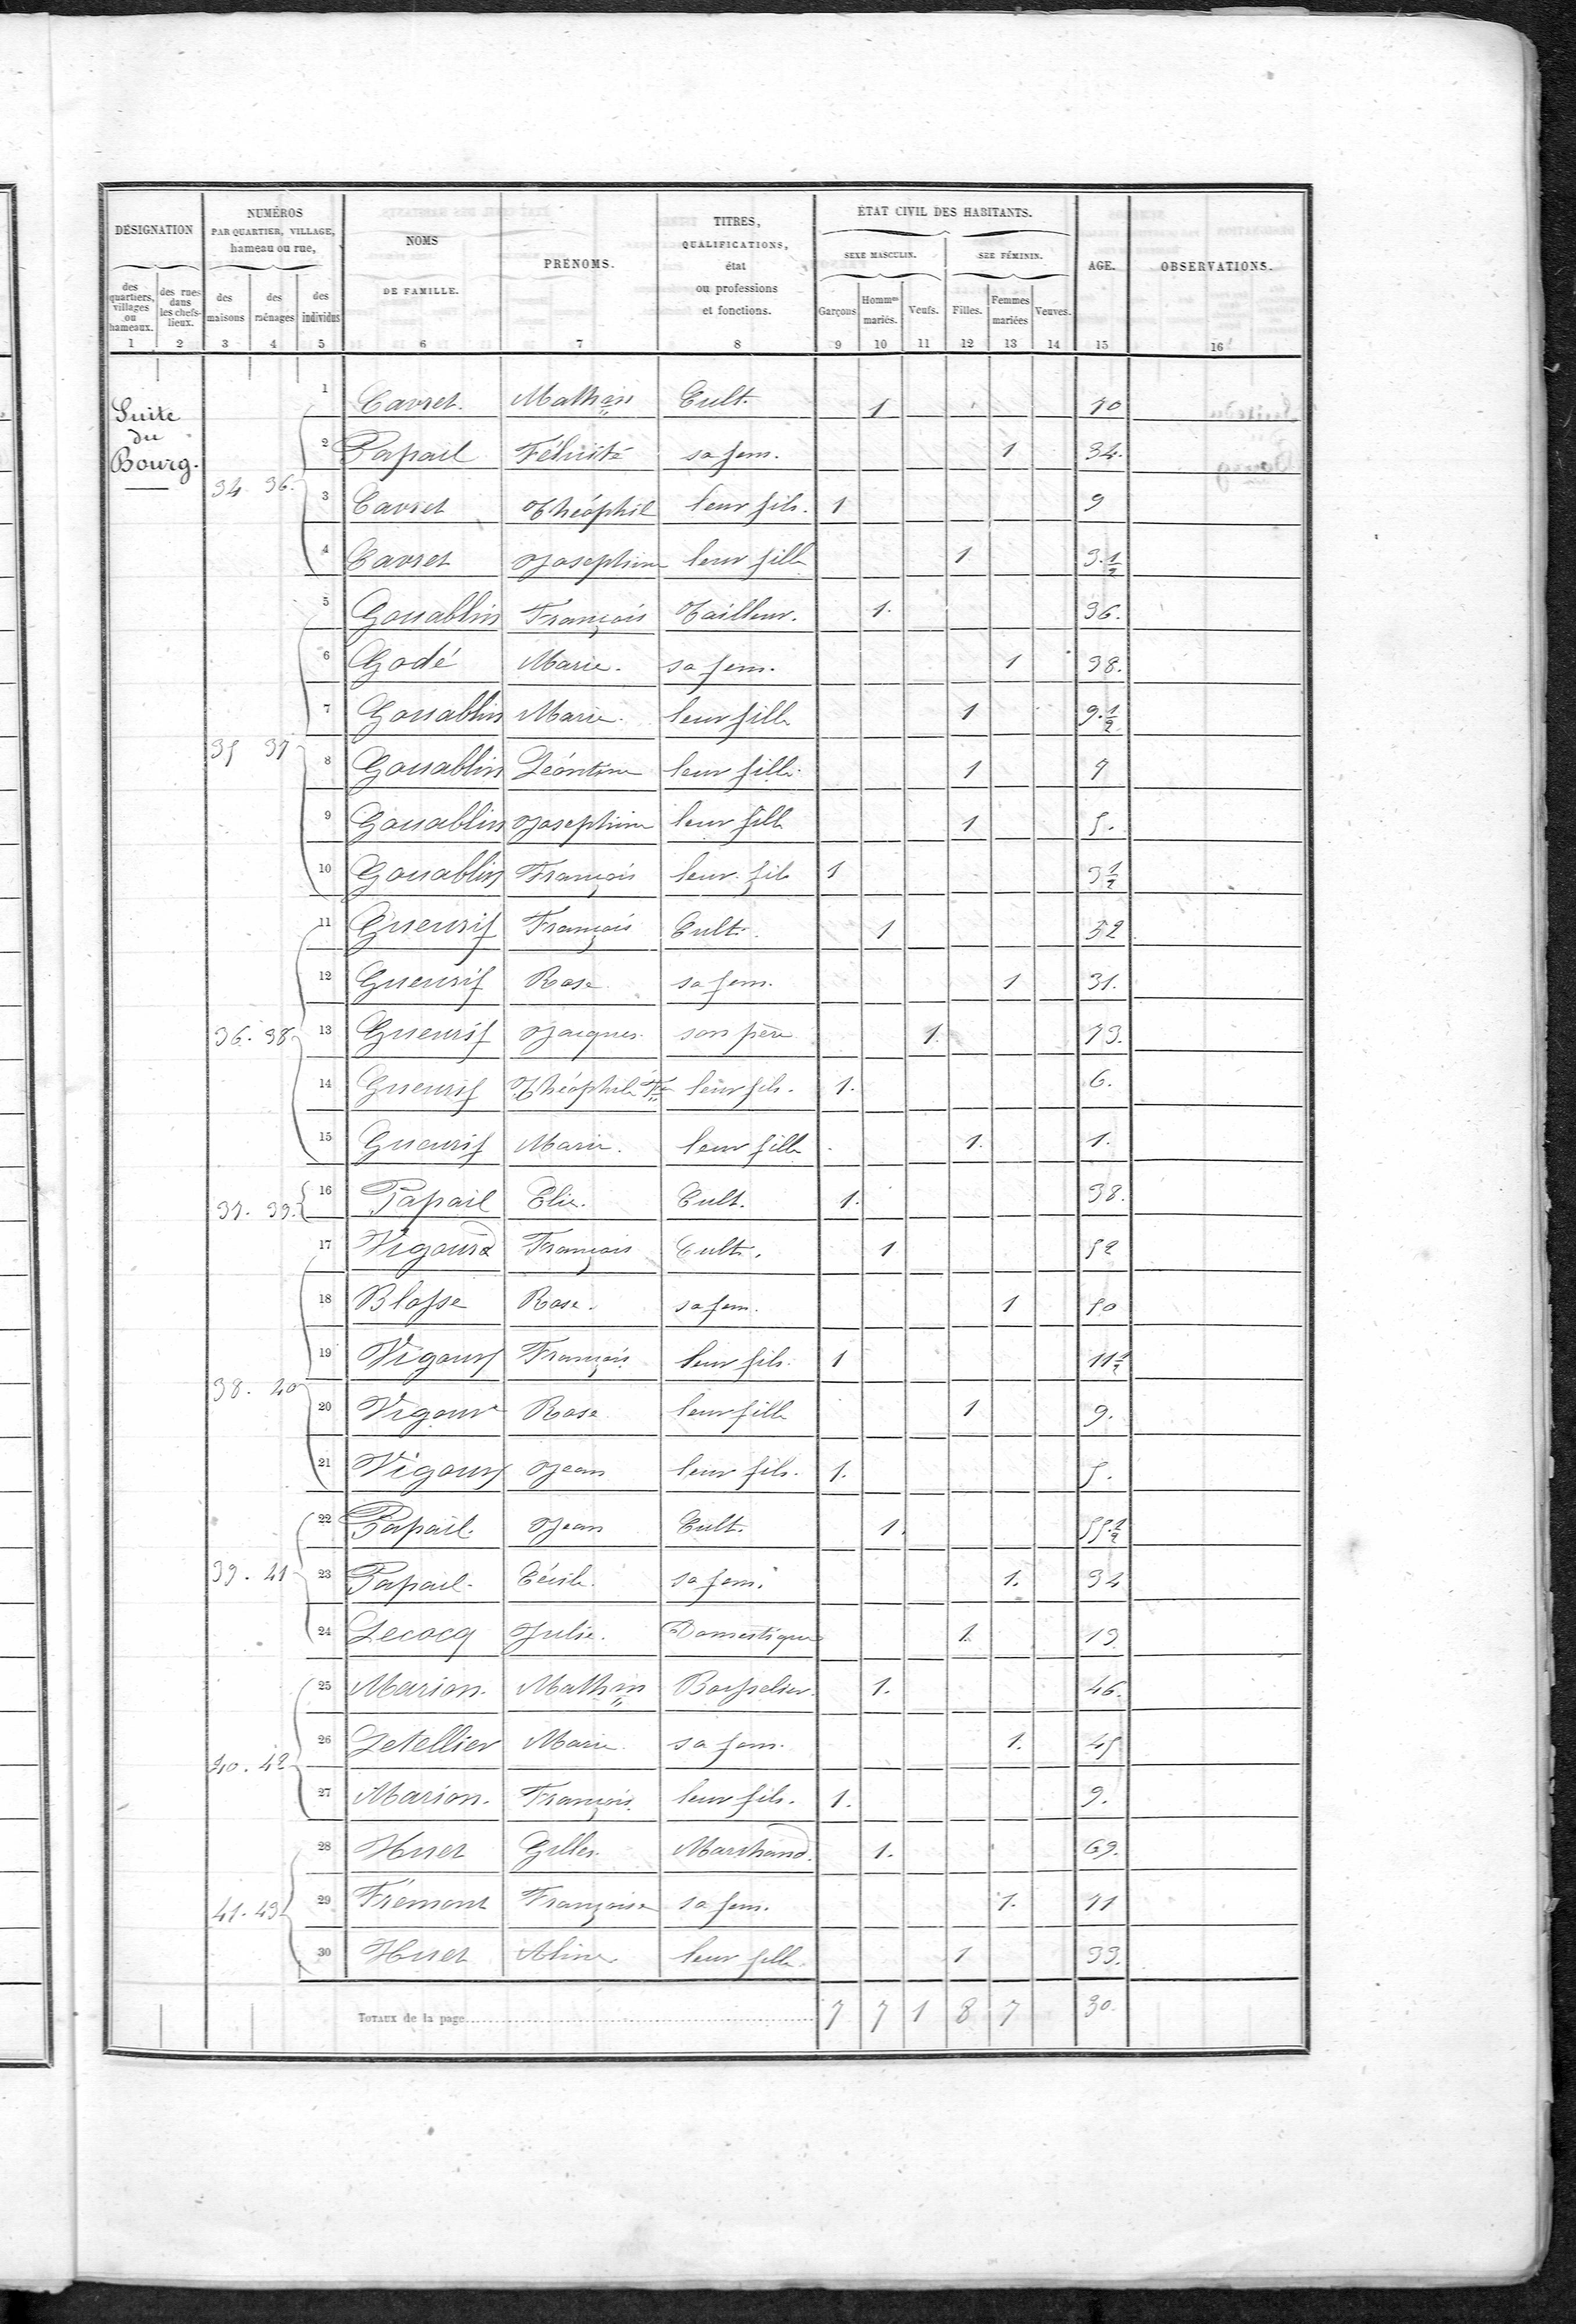 DÉSIGNATION
des quartiers, villages ou hameaux. 1
des rues dans les chefs-lieux. 2
NUMÉROS PAR QUARTIER, VILLAGE, hameau ou rue,
des maisons 3
des ménages 4
des individus 5
NOMS DE FAMILLE. 6
PRÉNOMS. 7
TITRES, QUALIFICATIONS, état ou professions et fonctions. 8
ÉTAT CIVIL DES HABITANTS.
SEXE MASCULIN.
Garçons 9
Hommes mariés. 10
Veufs. 11
SEXE FÉMININ.
Filles. 12
Femmes mariées 13
Veuves. 14
AGE. 15
OBSERVATIONS. 16
Suite du Bourg.
1 Cavret. Mathin Cult. 1 40
2 Papail Félicité sa fem. 1 34.
34. 36. 3 Cavret Théophil leur fils. 1 9
4 Cavret Josephine leur fille 1 3. 1/2
5 Gouablin François Tailleur. 1. 36.
6 Godé Marie. sa fem. 1 38.
7 Gouablin Marie. leur fille 1 9. 1/2
35 37 8 Gouablin Léontine leur fille. 1 7
9 Gouablin Josephine leur fille 1 5.
10 Gouablin François leur fils 1 3 1/2
11 Gueurif François Cult. 1 32
12 Gueurif Rose sa fem. 1 31.
36. 38 13 Gueurif Jacques. son père 1. 73.
14 Gueurif Théophile Fs leur fils. 1. 6.
15 Gueurif Marie. leur fille 1. 1.
37. 39. 16 Papail Elie. Cult. 1. 38.
17 Vigour François Cult. 1 52
18 Blosse Rose. sa fem. 1 50
19 Vigour François leur fils. 1 11 1/2
38. 40 20 Vigour Rose leur fille 1 9.
21 Vigour Jean leur fils. 1. 5.
22 Papail. Jean Cult. 1. 55. 1/2
39. 41 23 Papail. Cécile. sa fem. 1. 34
24 Lecocq Julie. Domestique 1. 19
25 Marion. Mathin Boisselier. 1. 46.
26 Letellier Marie sa fem. 1. 45
40. 42 27 Marion. François. leur fils. 1. 9.
28 Huet Gilles. Marchand. 1. 69.
41. 43 29 Frémont Françoise sa fem. 1. 71
30 Huet Aline leur fille. 1 33.
TOTAUX de la page 7 7 1 8 7 30.